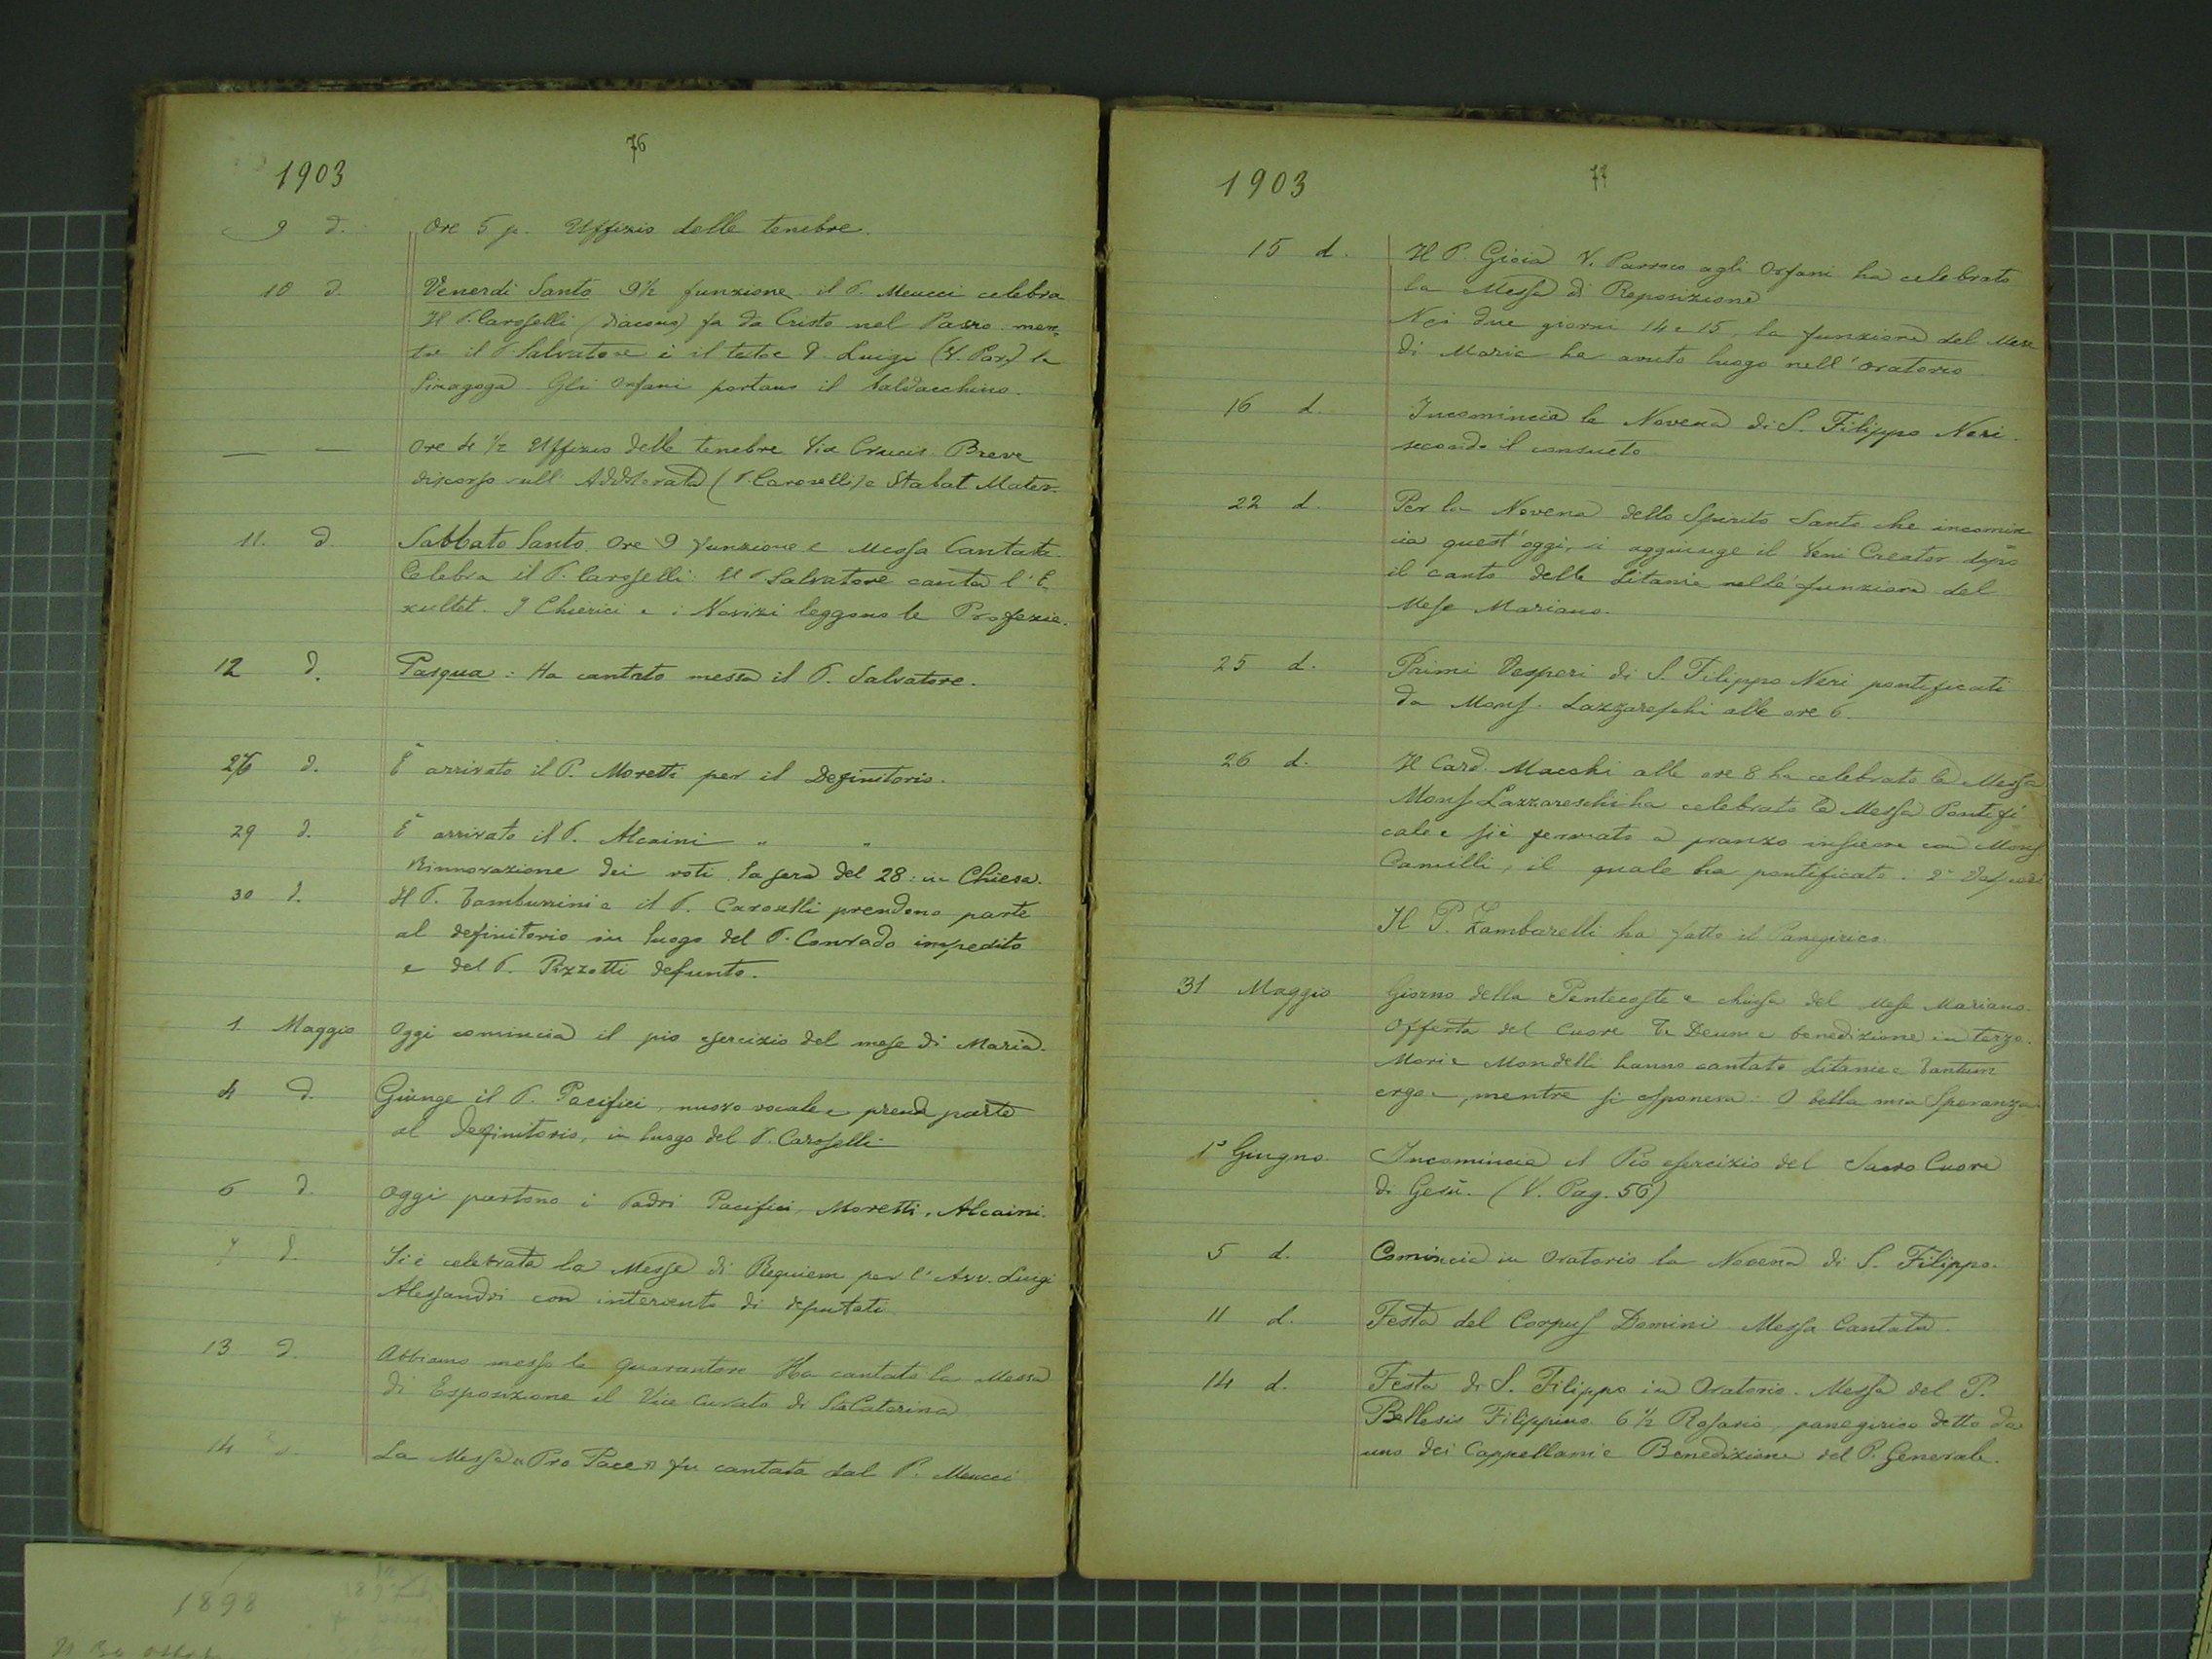 76
1903
9 d. Ore 5 p. Uffizio delle tenebre.
10 d. Venerdi Santo 9½ funzione: il P. Meucci celebra
Il P. Caroselli (diacono) fa da Cristo nel Passio, men-
tre il P. Salvatore è il testo e D. Luigi (V. Par.) la
Sinagoga. Gli Orfani portano il baldacchino.
— — Ore 4½ Uffizio delle tenebre. Via Crucis. Breve
discorso sull'Addolorata (P. Caroselli) e Stabat Mater.
11. d. Sabbato Santo. Ore 9 funzione e Messa Cantata.
Celebra il P. Caroselli: il P. Salvatore canta l'E-
xultet. I Chierici e i Novizi leggono le Profezie.
12 d. Pasqua: Ha cantato messa il P. Salvatore.
d. È arrivato il P. Moretti per il Definitorio.
29 d. È arrivato il P. Alcaini " "
Rinnovazione dei voti la sera del 28: in Chiesa.
30 d. Il P. Tamburrini e il P. Caroselli prendono parte
al definitorio in luogo del P. Conrado impedito
e del P. Pizzotti defunto.
1. Maggio Oggi comincia il pio esercizio del mese di Maria.
4 d. Giunge il P. Pacifici, nuovo vocale e prende parte
al definitorio, in luogo del P. Caroselli.
6 d. Oggi partono i Padri Pacifici, Moretti, Alcaini.
7 d. Si è celebrata la Messa di Requiem per l'Avv. Luigi
Alessandri con intervento di deputati.
13 d. Abbiamo messo le Quarantore. Ha cantato la Messa
di Esposizione il Vice Curato di Sta Caterina
14 d. La Messa "Pro Pace" fu cantata dal P. Meucci
77
1903
15 d. Il P. Gioia V. Parroco agli Orfani ha celebrato
la Messa di Reposizione
Nei due giorni 14 e 15, la funzione del Mese
di Maria ha avuto luogo nell'oratorio.
16 d. Incomincia la Novena di S. Filippo Neri
secondo il consueto.
22 d. Per la Novena dello Spirito Santo che incomin
cia quest'oggi, si aggiunge il Veni Creator dopo
il canto delle Litanie nella funzione del
Mese Mariano.
25 d. Primi Vesperi di S. Filippo Neri pontificati
da Mons. Lazzareschi alle ore 6.
26 d. Il Card. Macchi alle ore 8 ha celebrato la Messa
Mons. Lazzareschi ha celebrato la Messa Pontifi
cale e si è fermato a pranzo insieme con Mons.
Camilli, il quale ha pontificato i 2i Vesperi
Il P. Zambarelli ha fatto il Panegirico.
31 Maggio Giorno della Pentecoste e chiusa del Mese Mariano.
Offerta del Cuore Te Deum e benedizione in terzo.
Mori e Mondelli hanno cantato Litanie e Tantum
ergo e, mentre si esponeva: O bella mia Speranza.
1º Giugno. Incomincia il Pio esercizio del Sacro Cuore
di Gesù. (V. Pag. 56)
5 d. Comincia in Oratorio la Novena di S. Filippo.
11 d. Festa del Corpus Domini. Messa Cantata.
14 d. Festa di S. Filippo in Oratorio. Messa del P.
Filippino. 6½ Rosario, panegirico detto da
uno dei Cappellani e Benedizione del P. Generale.
1898